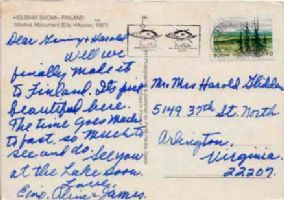 HELSINKI SUOMI - FINLAND
Sibelius Monument (Eila Hiltunen, 1967)
Dear Genny & Harold
Well we
finally made it
to Finland. It's
beautiful here.
The time goes much
to fast, so much to
see and do. See you
at the Lake soon.
Love
Oliver James.
Mr. Mrs Harold Glidden
5149 37th St. North.
Arlington,
Virginia.
22207.